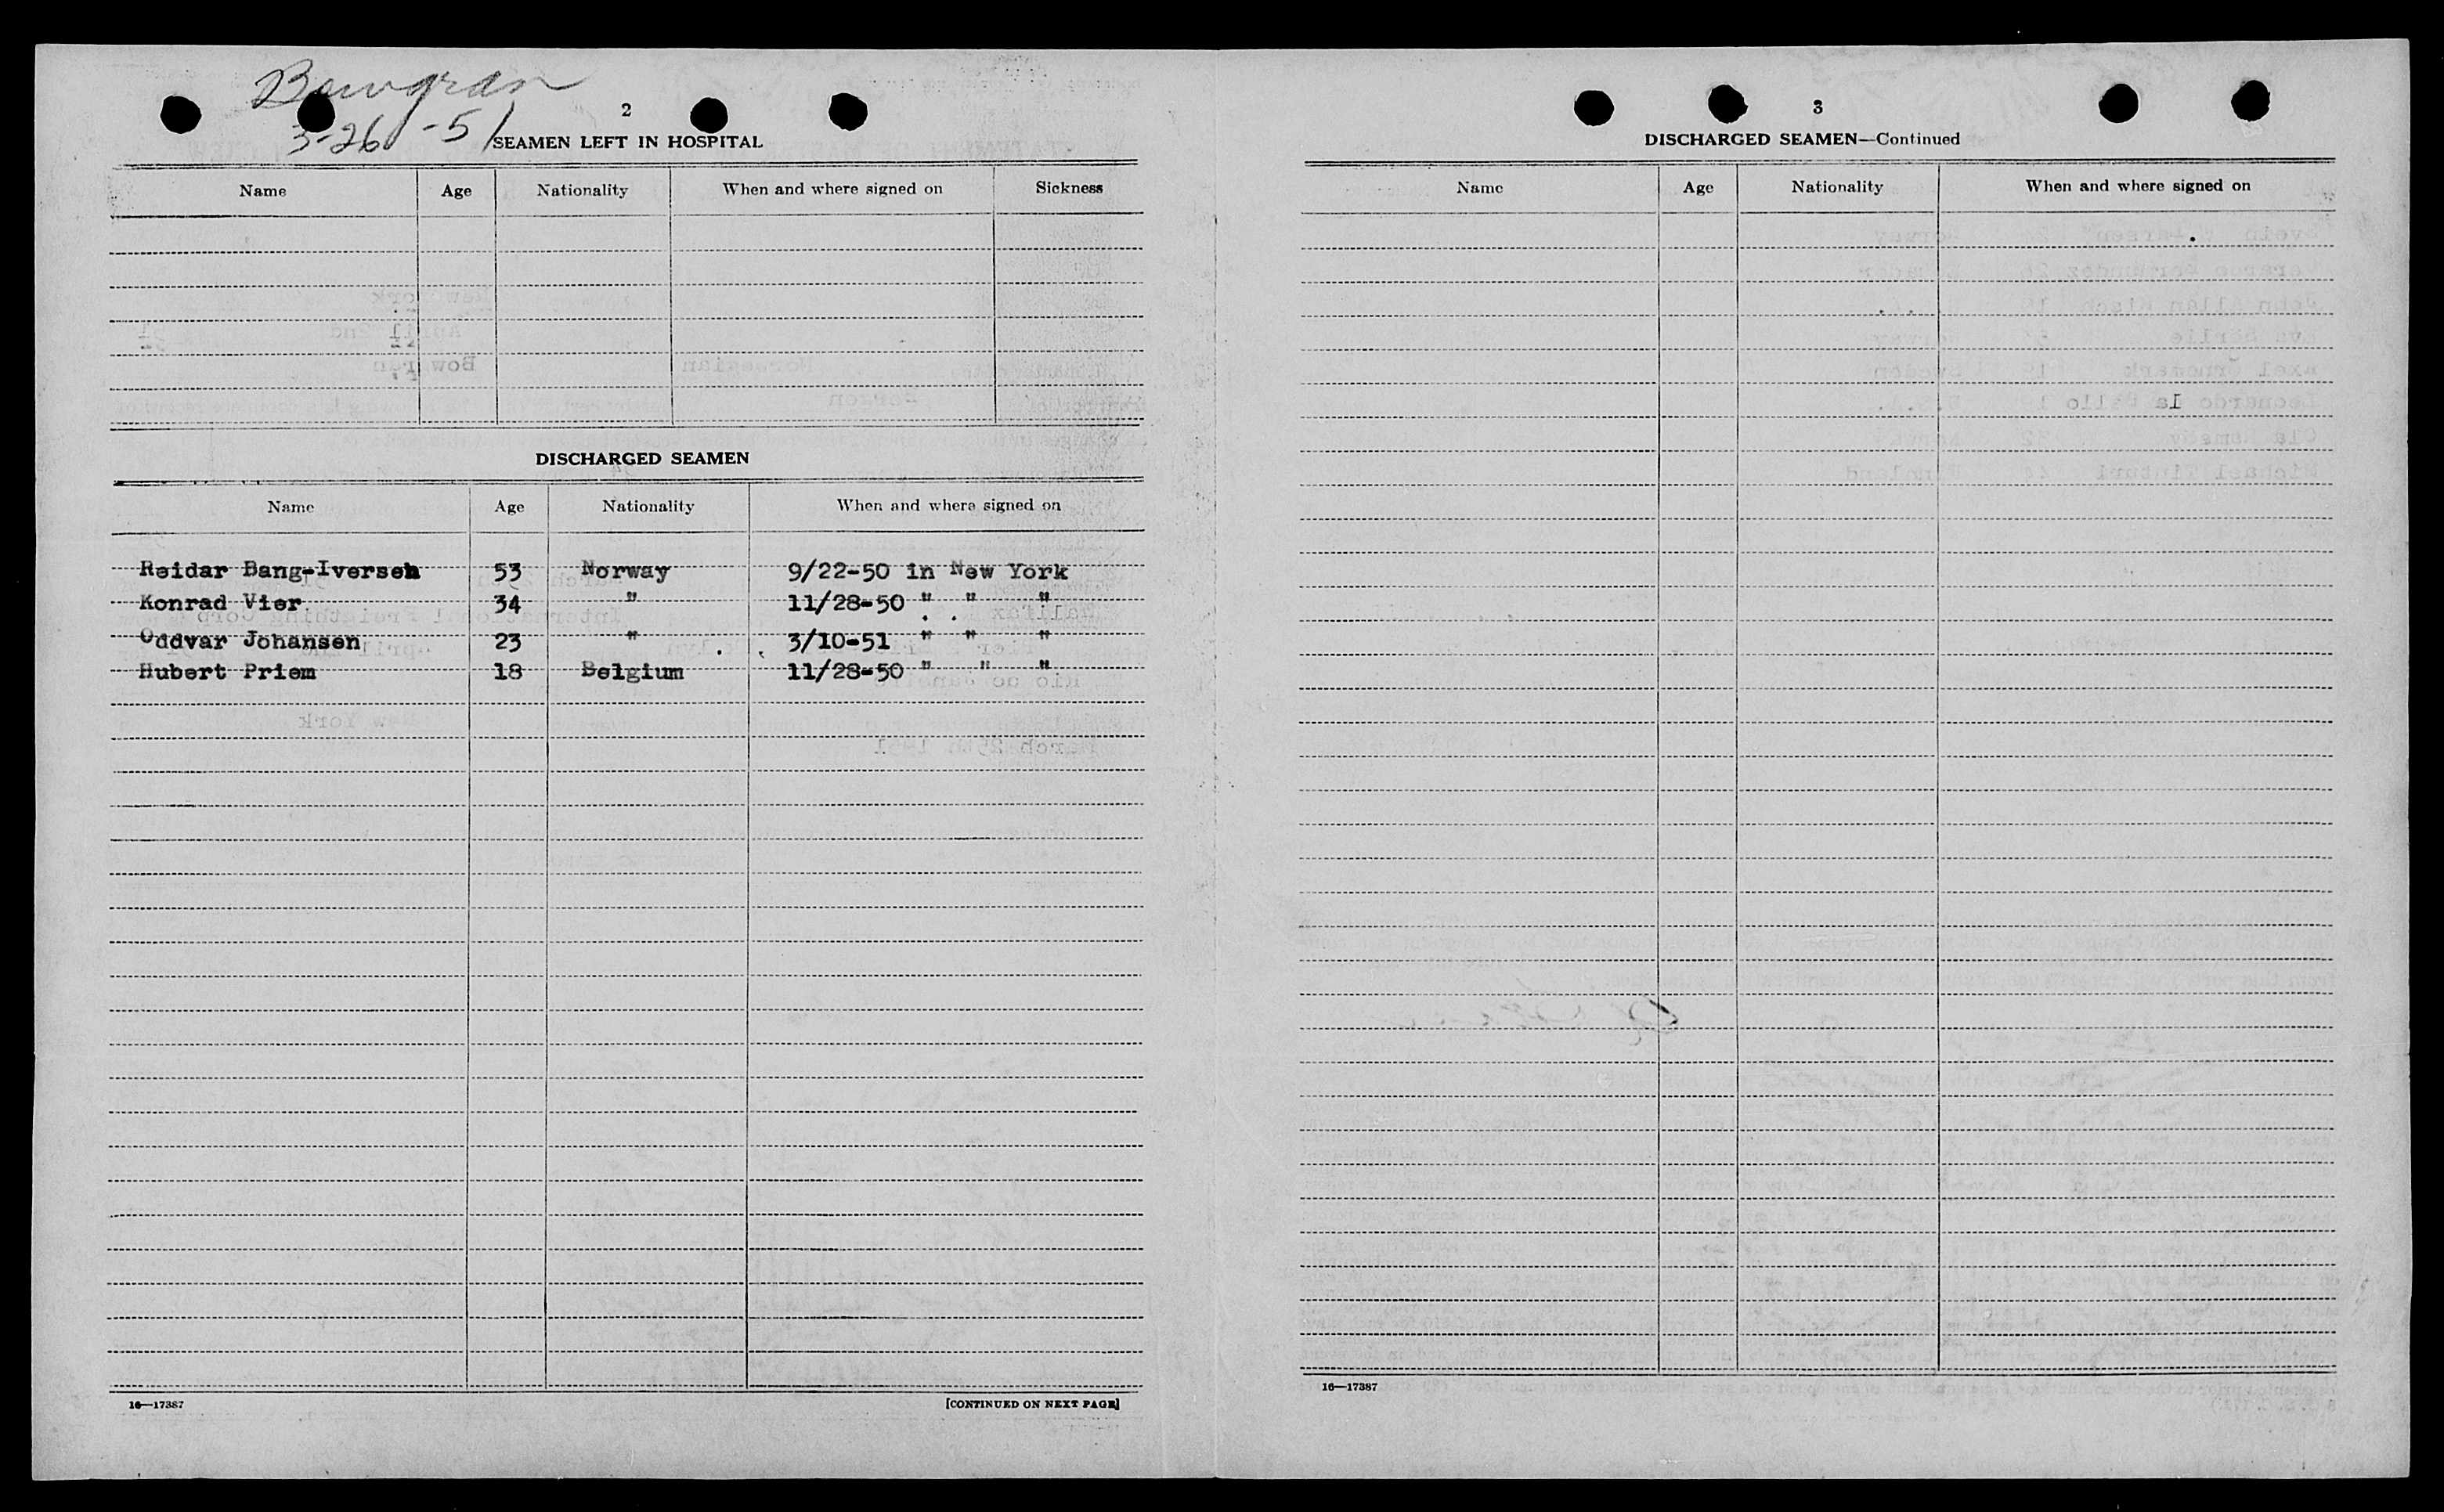 Bowgran
3-26-51
2
SEAMEN LEFT IN HOSPITAL
Name Age Nationality When and where signed on Sickness
DISCHARGED SEAMEN
Name Age Nationality When and where signed on
Reidar Bang-Iversen 53 Norway 9/22-50 in New York
Konrad Vier 34 " 11/28-50 " " "
Oddvar Johansen 23 " 3/10-51 " " "
Hubert Priem 18 Belgium 11/28-50 " " "
16—17387 [CONTINUED ON NEXT PAGE]
3
DISCHARGED SEAMEN—Continued
Name Age Nationality When and where signed on
16—17387